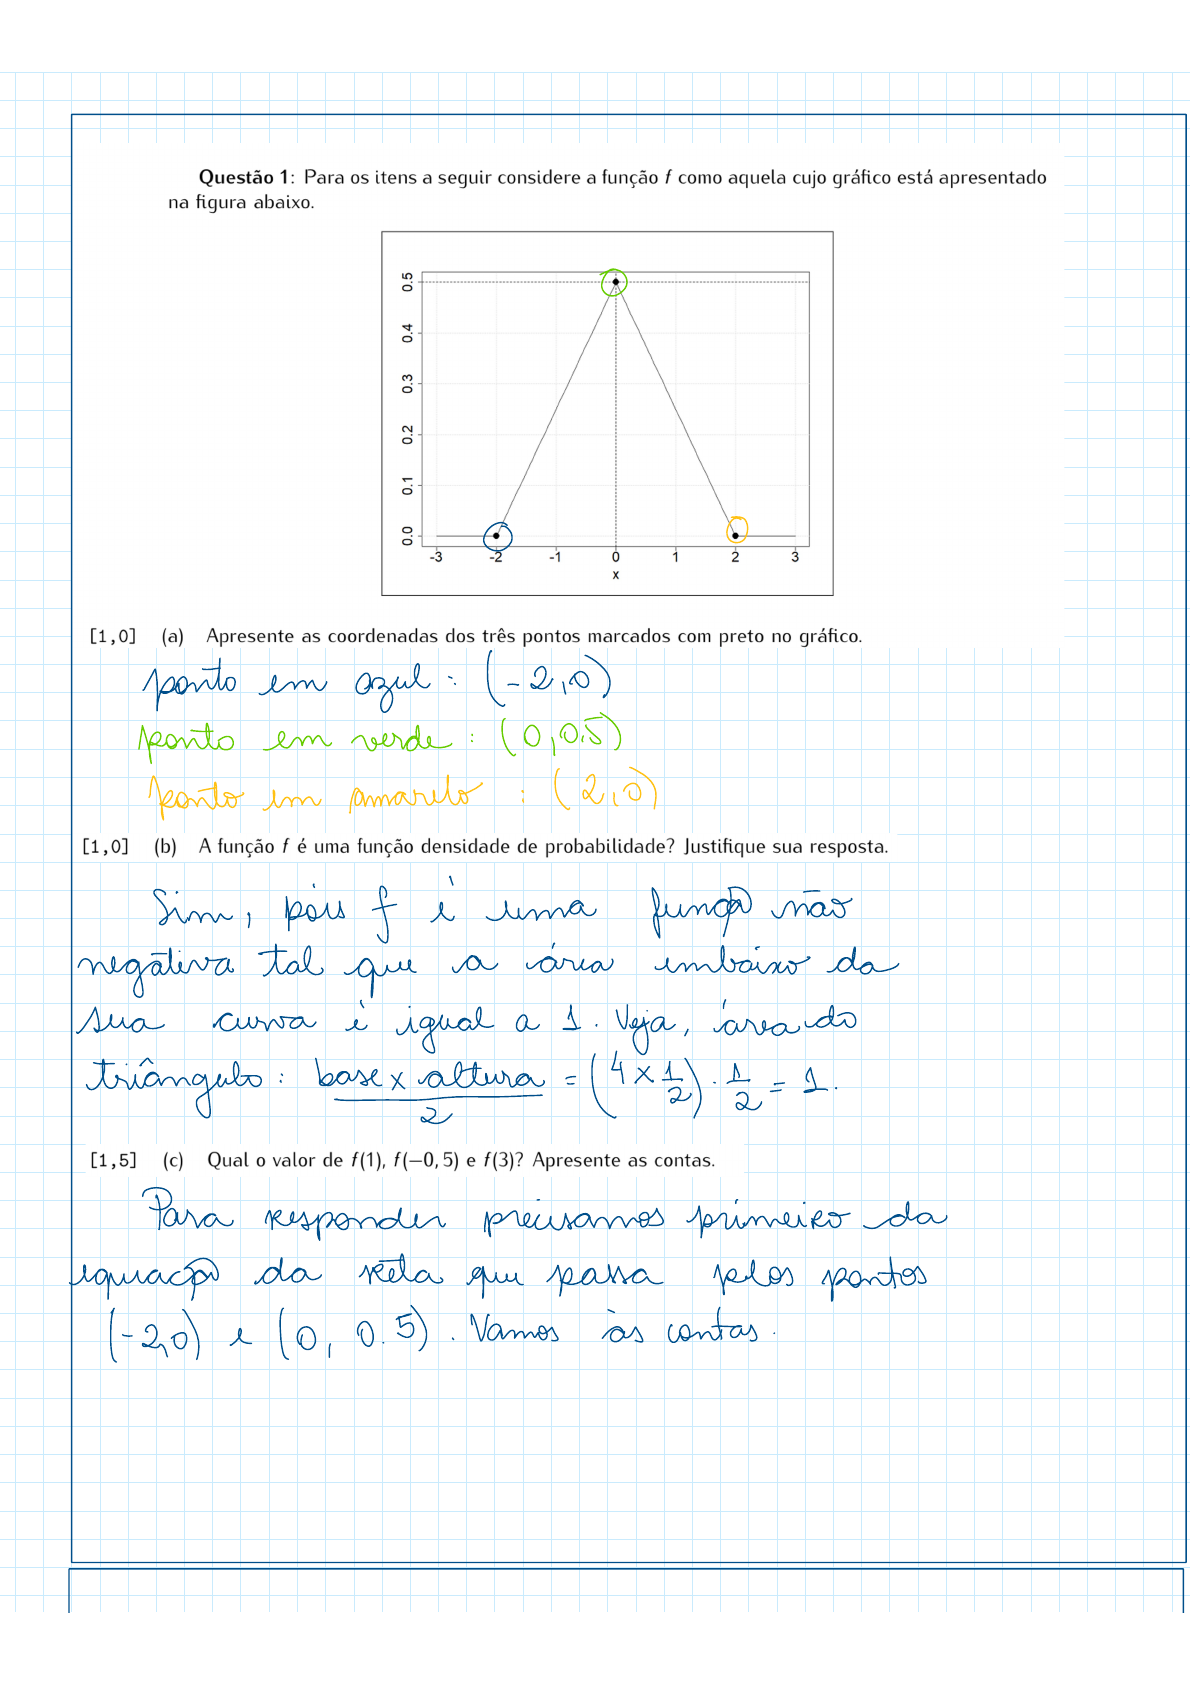 Questão 1: Para os itens a seguir considere a função f como aquela cujo gráfico está apresentado
na figura abaixo.
0.5
0.4
0.3
0.2
0.1
0.0
-3 -2 -1 0 1 2 3
x
[1,0] (a) Apresente as coordenadas dos três pontos marcados com preto no gráfico.
ponto em azul : (-2,0)
ponto em verde : (0,0.5)
ponto em amarelo : (2,0)
[1,0] (b) A função f é uma função densidade de probabilidade? Justifique sua resposta.
Sim, pois f é uma função não
negativa tal que a área embaixo da
sua curva é igual a 1. Veja, área do
triângulo: base x altura / 2 = (4 x 1/2) · 1/2 = 1.
[1,5] (c) Qual o valor de f(1), f(−0,5) e f(3)? Apresente as contas.
Para responder precisamos primeiro da
equação da reta que passa pelos pontos
(-2,0) e (0, 0.5). Vamos às contas.